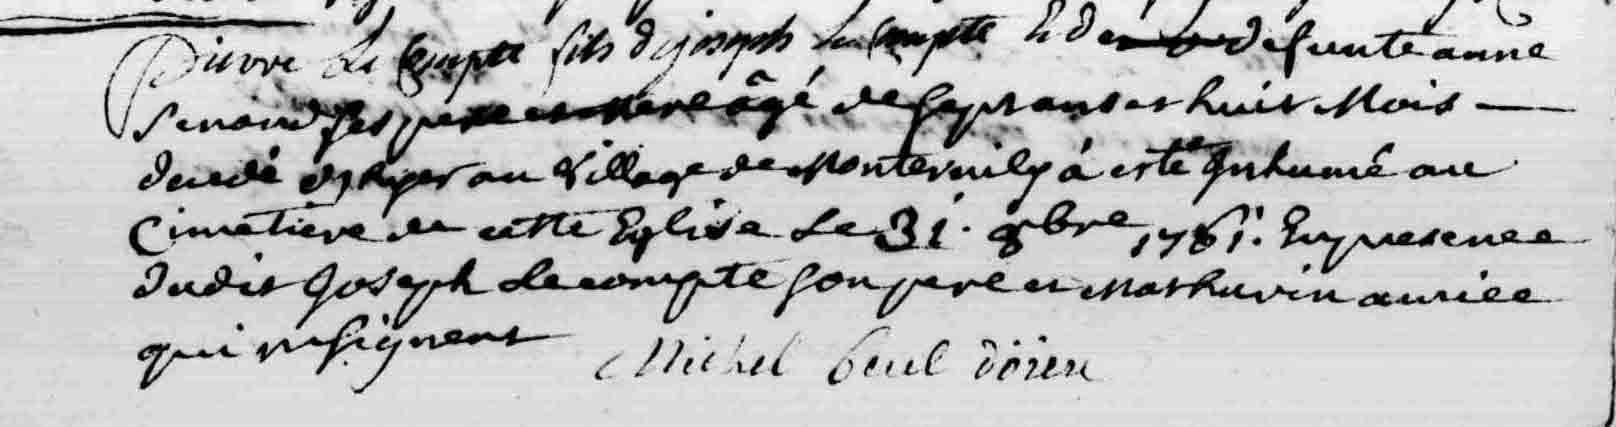 Pierre Le Compte fils de joseph Le Compte Et de defunte anne
Renaud ses pere et Mere âgé de Sept ans et huit Mois
decedé d'hyer au Village de Monternil y à esté Inhumé au
Cimetiere de cette Eglise Le 31. 8bre 1761. En presence
dudit Joseph Lecompte Son pere et Mathurin auriee
qui ne signent Michel